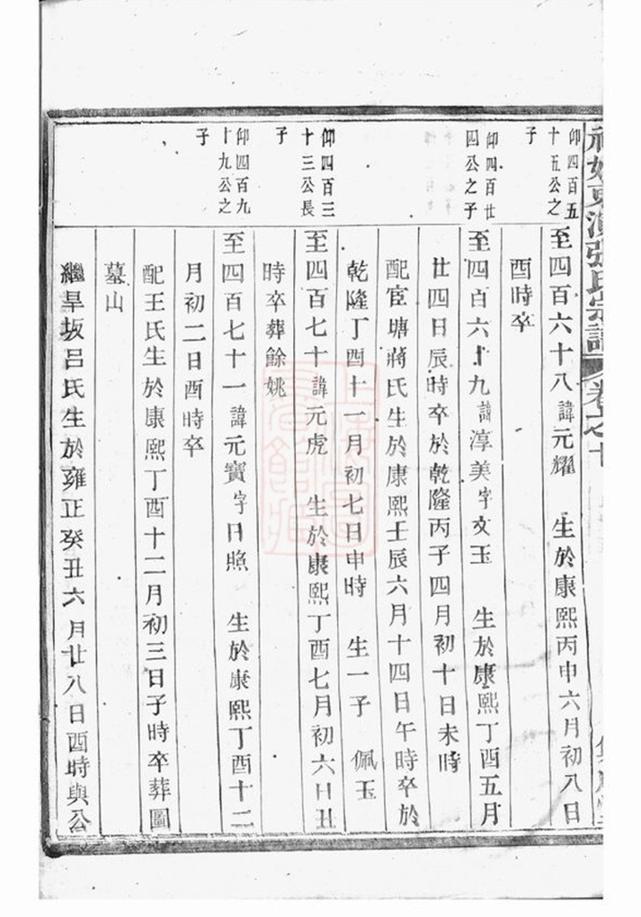 張氏宗譜
卷之十
仰四百五
十五公之
子
至四百六十八諱元耀　生於康熙丙申六月初八日
酉時卒
仰四百廿
四公之子
至四百六十九諱淳美字文玉　生於康熙丁酉五月
廿四日辰時卒於乾隆丙子四月初十日未時
配官塘蔣氏生於康熙壬辰六月十四日午時卒於
乾隆丁酉十一月初七日申時　生一子　佩玉
仰四百三
十三公長
子
至四百七十諱元虎　生於康熙丁酉七月初六日丑
時卒葬餘姚
仰四百九
十九公之
子
至四百七十一諱元寶字日照　生於康熙丁酉十二
月初二日酉時卒
配王氏生於康熙丁酉十二月初三日子時卒葬圖
墓山
繼旱坂呂氏生於雍正癸丑六月廿八日酉時與公